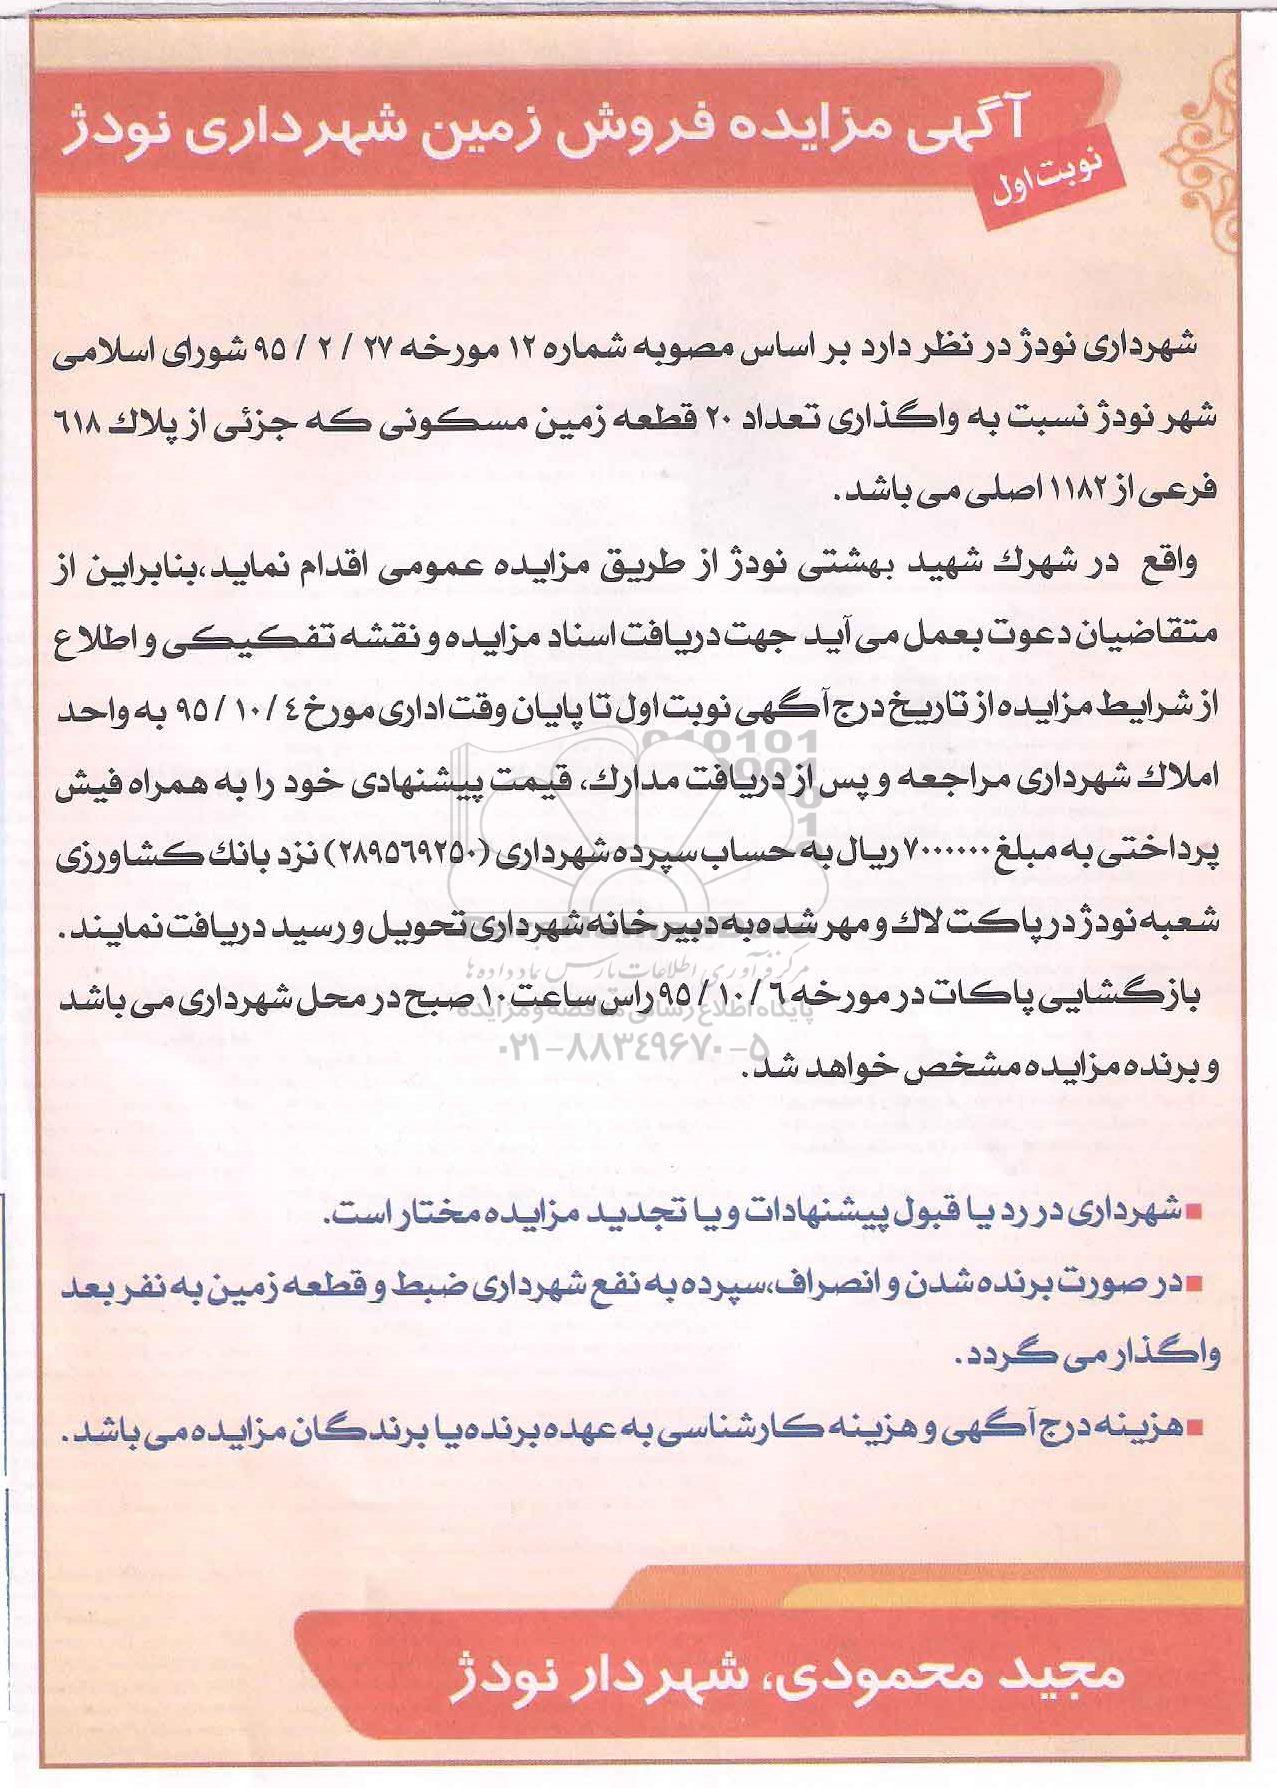 آگهی مزایده فروش زمین شهرداری نودژ
نوبت اول
شهرداری نودژ در نظر دارد بر اساس مصوبه شماره ۱۲ مورخه ۲۷ / ۲ / ۹۵ شورای اسلامی
شهر نودژ نسبت به واگذاری تعداد ۲۰ قطعه زمین مسکونی که جزئی از پلاك ٦۱۸
فرعی از ۱۱۸۲ اصلی می باشد.
واقع در شهرك شهید بهشتی نودژ از طریق مزایده عمومی اقدام نماید،بنابراین از
متقاضیان دعوت بعمل می آید جهت دریافت اسناد مزایده و نقشه تفکیکی و اطلاع
از شرایط مزایده از تاریخ درج آگهی نوبت اول تا پایان وقت اداری مورخ ٤ / ۱۰ / ۹۵ به واحد
املاك شهرداری مراجعه و پس از دریافت مدارك، قیمت پیشنهادی خود را به همراه فیش
پرداختی به مبلغ ۷۰۰۰۰۰۰ ریال به حساب سپرده شهرداری (۲۸۹۵٦۹۲۵۰) نزد بانك کشاورزی
شعبه نودژ در پاکت لاك و مهر شده به دبیرخانه شهرداری تحویل و رسید دریافت نمایند.
مرکز فرآوری اطلاعات پارس نماد داده ها
بازگشایی پاکات در مورخه ٦ / ۱۰ / ۹۵ راس ساعت ۱۰ صبح در محل شهرداری می باشد
پایگاه اطلاع رسانی مناقصه و مزایده
۰۲۱-۸۸۳٤۹۶۷۰-۵
و برنده مزایده مشخص خواهد شد.
▪شهرداری در رد یا قبول پیشنهادات و یا تجدید مزایده مختار است.
▪در صورت برنده شدن و انصراف،سپرده به نفع شهرداری ضبط و قطعه زمین به نفر بعد
واگذار می گردد.
▪هزینه درج آگهی و هزینه کارشناسی به عهده برنده یا برندگان مزایده می باشد.
مجید محمودی، شهردار نودژ